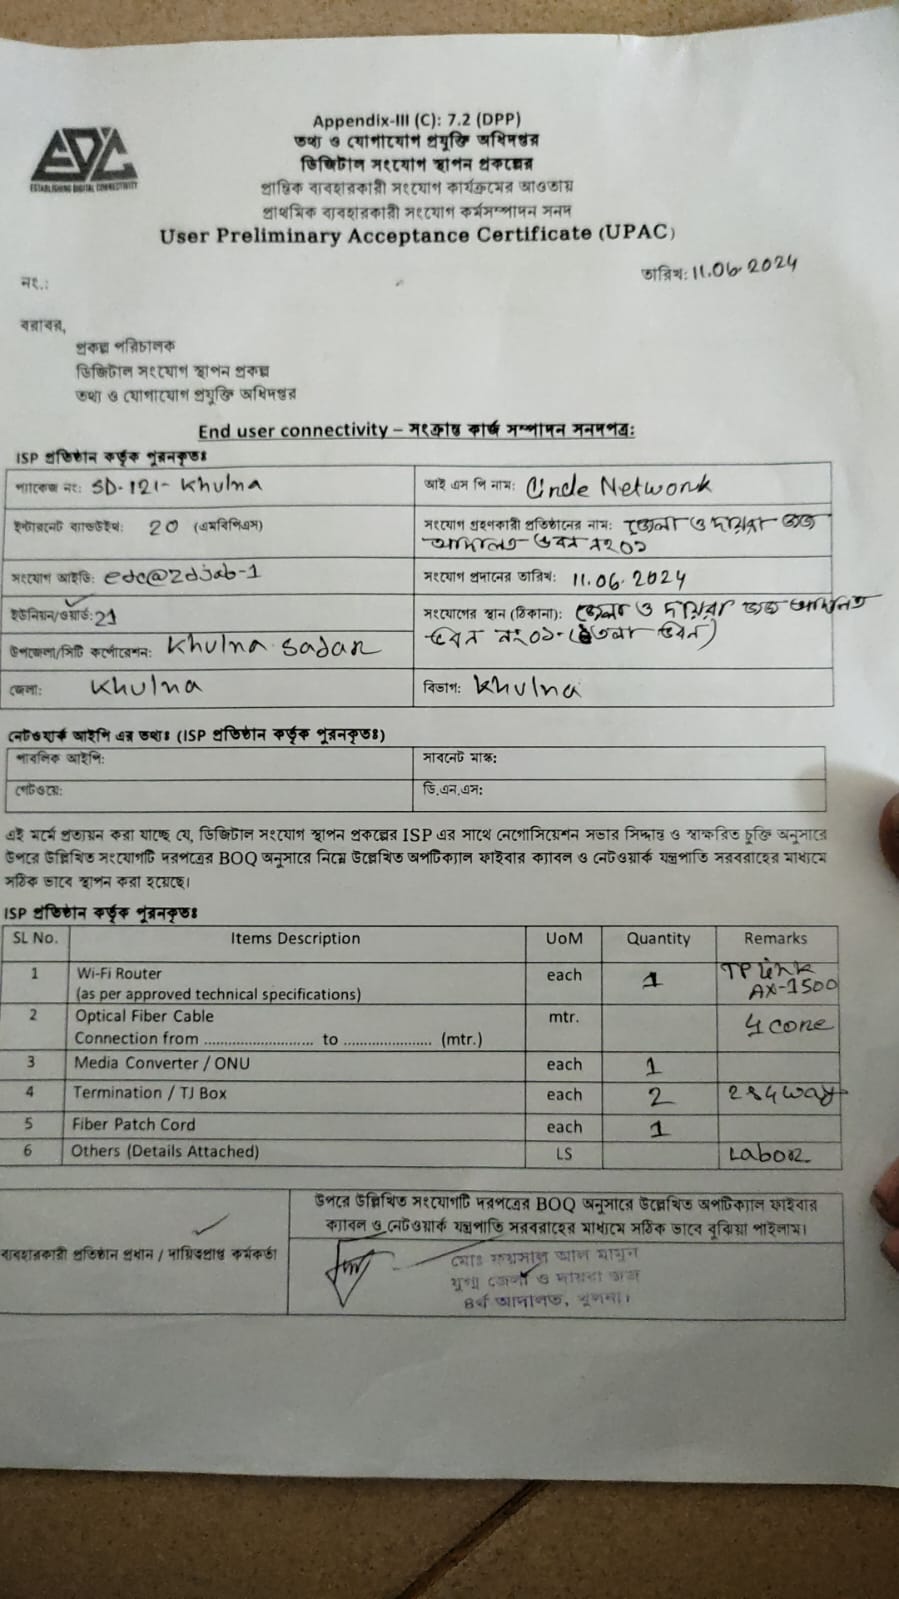 EDC
ESTABLISHING DIGITAL CONNECTIVITY
Appendix-III (C): 7.2 (DPP)
তথ্য ও যোগাযোগ প্রযুক্তি অধিদপ্তর
ডিজিটাল সংযোগ স্থাপন প্রকল্পের
প্রান্তিক ব্যবহারকারী সংযোগ কার্যক্রমের আওতায়
প্রাথমিক ব্যবহারকারী সংযোগ কর্মসম্পাদন সনদ
User Preliminary Acceptance Certificate (UPAC)
তারিখ: 11.06.2024
নং.:
বরাবর,
প্রকল্প পরিচালক
ডিজিটাল সংযোগ স্থাপন প্রকল্প
তথ্য ও যোগাযোগ প্রযুক্তি অধিদপ্তর
End user connectivity – সংক্রান্ত কার্জ সম্পাদন সনদপত্র:
ISP প্রতিষ্ঠান কর্তৃক পুরনকৃতঃ
প্যাকেজ নং: SD-121-Khulna
আই এস পি নাম: Circle Network
ইন্টারনেট ব্যান্ডউইথ: 20 (এমবিপিএস)
সংযোগ গ্রহণকারী প্রতিষ্ঠানের নাম: জেলা ও দায়রা জজ
আদালত ভবন নং ০১
সংযোগ আইডি: edc@zdjab-1
সংযোগ প্রদানের তারিখ: 11.06.2024
ইউনিয়ন/ওয়ার্ড: 21
সংযোগের স্থান (ঠিকানা): জেলা ও দায়রা জজ আদালত
ভবন নং ০১ ভবন)
উপজেলা/সিটি কর্পোরেশন: Khulna Sadar
জেলা: Khulna
বিভাগ: Khulna
নেটওয়ার্ক আইপি এর তথ্যঃ (ISP প্রতিষ্ঠান কর্তৃক পুরনকৃতঃ)
পাবলিক আইপি:
সাবনেট মাস্ক:
গেটওয়ে:
ডি.এন.এস:
এই মর্মে প্রত্যয়ন করা যাচ্ছে যে, ডিজিটাল সংযোগ স্থাপন প্রকল্পের ISP এর সাথে নেগোসিয়েশন সভার সিদ্ধান্ত ও স্বাক্ষরিত চুক্তি অনুসারে
উপরে উল্লিখিত সংযোগটি দরপত্রের BOQ অনুসারে নিম্নে উল্লেখিত অপটিক্যাল ফাইবার ক্যাবল ও নেটওয়ার্ক যন্ত্রপাতি সরবরাহের মাধ্যমে
সঠিক ভাবে স্থাপন করা হয়েছে।
ISP প্রতিষ্ঠান কর্তৃক পুরনকৃতঃ
SL No. Items Description UoM Quantity Remarks
1 Wi-Fi Router each 1 TP Link
(as per approved technical specifications) AX-1500
2 Optical Fiber Cable mtr. 4 core
Connection from ........................... to ...................... (mtr.)
3 Media Converter / ONU each 1
4 Termination / TJ Box each 2 2&4 way
5 Fiber Patch Cord each 1
6 Others (Details Attached) LS Labor
উপরে উল্লিখিত সংযোগটি দরপত্রের BOQ অনুসারে উল্লেখিত অপটিক্যাল ফাইবার
ক্যাবল ও নেটওয়ার্ক যন্ত্রপাতি সরবরাহের মাধ্যমে সঠিক ভাবে বুঝিয়া পাইলাম।
ব্যবহারকারী প্রতিষ্ঠান প্রধান / দায়িত্বপ্রাপ্ত কর্মকর্তা
মোঃ ফয়সাল আল মামুন
যুগ্ম জেলা ও দায়রা জজ
৪র্থ আদালত, খুলনা।